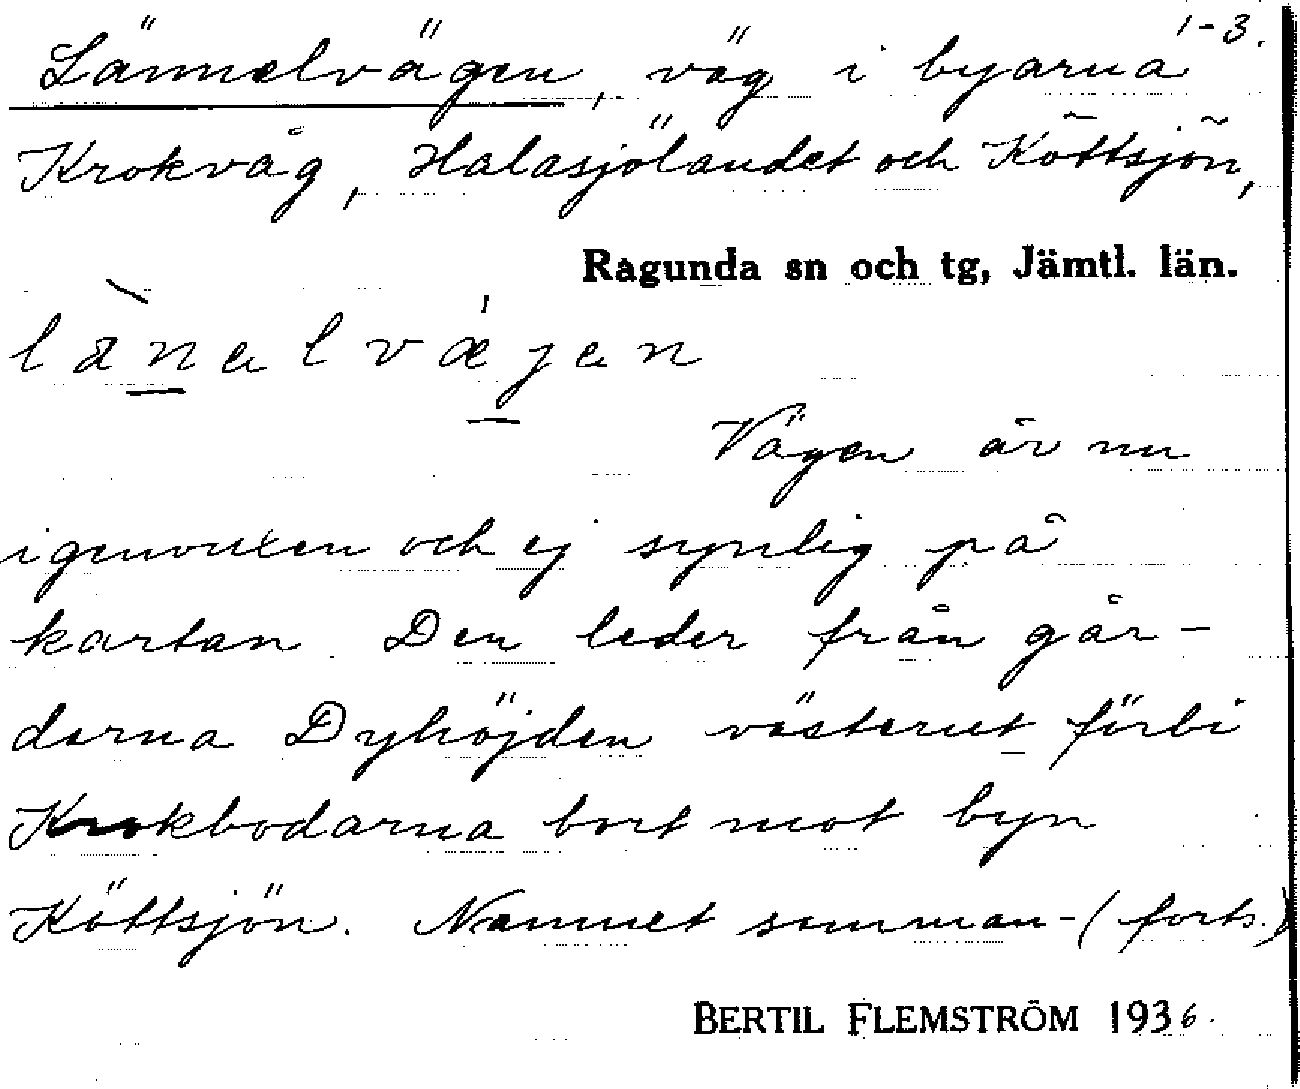 1-3.
Lännelvägen, väg i byarna
Krokvåg, Halasjölandet och Köttsjön,
Ragunda sn och tg, Jämtl. län.
lànelvǽjen
Vägen är nu
igenvuxen och ej synlig på
kartan. Den leder från går-
darna Dyhöjden västerut förbi
Krokbodarna bort mot byn
Köttsjön. Namnet samman- (forts.)
BERTIL FLEMSTRÖM 1936.